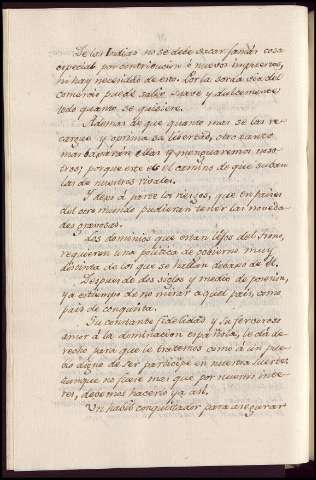 De las Indias no se debe sacar jamás cosa
especial por contribucion ó nuevos impuestos,
ni hay necesidad de esto. Por la sorda via del
comercio puede salir suave y dulcemente
todo quanto se quisiere.
Ademas de que quanto mas se las re-
cargue y oprima su libertad, otro tanto
mas bajarán ellas y menguaremos noso-
tros; porque este es el camino de que suban
las de nuestros rivales.
Y dejo á parte los riesgos, que en países
del otro mundo pudieran tener las noveda-
des gravosas.
Los dominios que estan lejos del Trono,
requieren una política de gobierno muy
distinta de los que se hallan debaxo de él.
Despues de dos siglos y medio de posesion,
ya es tiempo de no mirar aquel país, como
país de conquista.
Su constante fidelidad y su fervoroso
amor á la dominacion española, le dá de-
recho para que le tratemos como á un pue-
blo digno de ser participe en nuestra suerte:
aunque no fuere mas que por nuestro inte-
res, debemos hacerlo ya así.
Un habil conquistador para asegurar